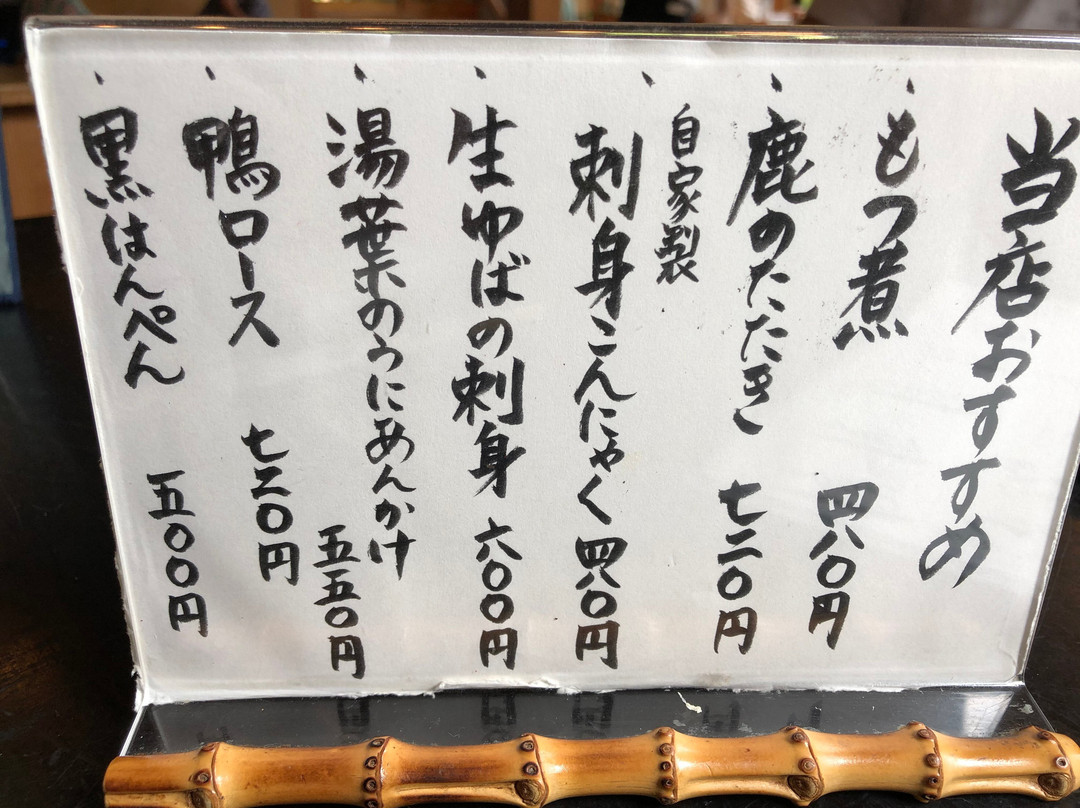 当店おすすめ
もつ煮 四八〇円
鹿のたたき 七二〇円
自家製
刺身こんにゃく 四八〇円
生ゆばの刺身 六〇〇円
湯葉のうにあんかけ 五五〇円
鴨ロース 七二〇円
黒はんぺん 五〇〇円